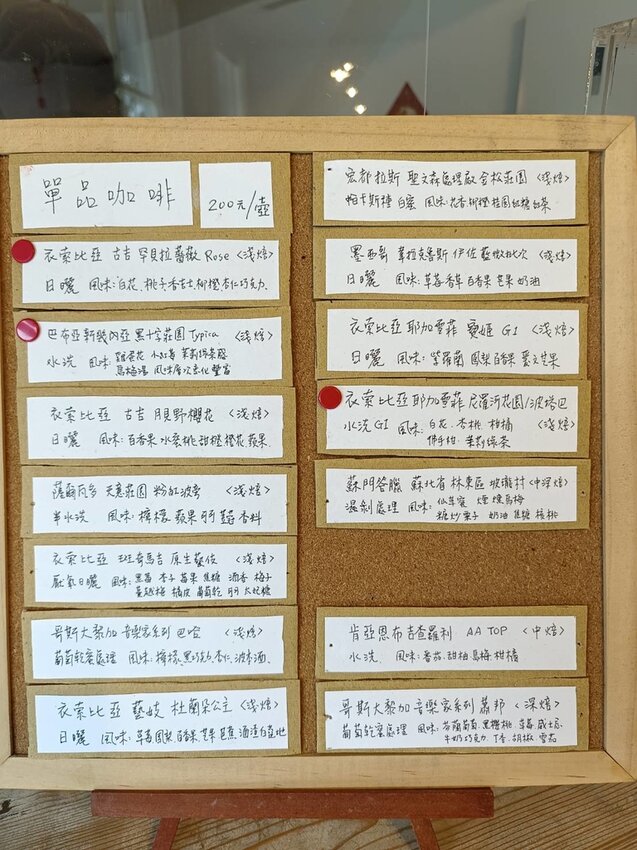 單品咖啡
200元/壺
衣索比亞 古吉 罕貝拉薔薇 Rose <淺焙>
日曬 風味:白花.桃子.香吉士.柳橙.杏仁巧克力.
巴布亞新幾內亞 黑十字莊園 Typica <淺焙>
水洗 風味 雞蛋花 小紅莓 茉莉綠茶
烏梅湯 風味層次變化豐富
衣索比亞 古吉 貝野櫻花 <淺焙>
日曬 風味:百香果 水蜜桃 甜橙 橙花 蘋果.
薩爾瓦多 天意莊園 粉紅波旁 <淺焙>
半水洗 風味:檸檬 蘋果 香料
衣索比亞 班奇馬吉 原生藝伎 <淺焙>
厭氧日曬 風味:黑莓 李子 莓果 焦糖 酒香 梅子
蔓越莓 橘皮 葡萄乾 太妃糖
哥斯大黎加 音樂家系列 巴哈 <淺焙>
葡萄乾蜜處理 風味:檸檬.黑巧克力.杏仁.波本酒.
衣索比亞 藝妓 杜蘭朵公主 <淺焙>
日曬 風味:草莓 鳳梨 百香果.芒果 芭蕉.酒漬白葡萄
宏都拉斯 聖文森處理廠 金松莊園 <淺焙>
帕卡斯種 白蜜 風味:花香 柳橙 桂圓 紅糖 紅茶
墨西哥 韋拉克魯斯 伊佐 藝妓批次 <淺焙>
日曬 風味:草莓 香草 百香果 芒果 奶油
衣索比亞 耶加雪菲 寶姬 G1 <淺焙>
日曬 風味:紫羅蘭 鳳梨 百香果 愛文芒果
衣索比亞 耶加雪菲 尼羅沂花園/波塔巴
水洗 G1 風味:白花.杏桃.柑橘 <淺焙>
佛手柑.茉莉綠茶
蘇門答臘 蘇北省 林東區 玻瓏村 <中深焙>
濕剝處理 風味:仙草蜜 煙燻烏梅
糖炒栗子 奶油 焦糖 核桃
肯亞恩布吉查羅利 AA TOP <中焙>
水洗 風味:番茄.甜柚.烏梅.柑橘
哥斯大黎加 音樂家系列 蕭邦 <深焙>
葡萄乾蜜處理 風味:芬蘭葡萄.黑櫻桃.草莓.威士忌.
牛奶巧克力.丁香.胡椒.雪茄